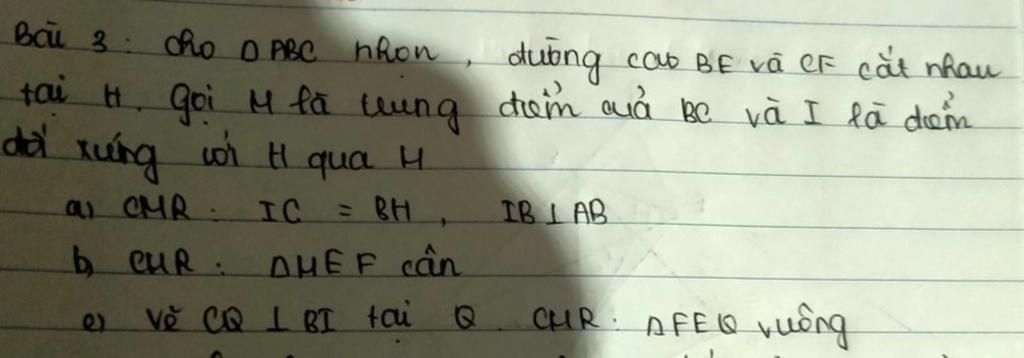 Bài 3: Cho Δ ABC nhọn, đường cao BE và CF cắt nhau
tại H. Gọi M là trung điểm của BC và I là điểm
đối xứng với H qua M
a) CMR: IC = BH, IB ⊥ AB
b) CMR: ΔMEF cân
c) Vẽ CQ ⊥ BI tại Q. CMR: ΔFEQ vuông